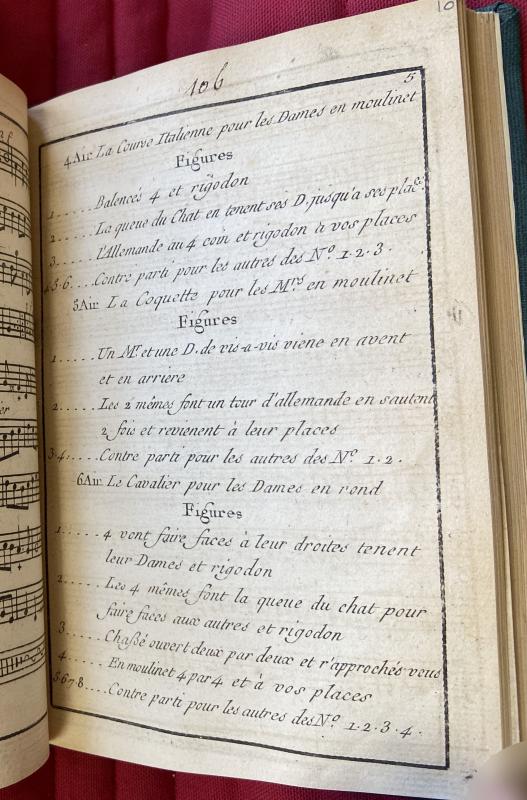 106
10
5
4 Air La Courve Italienne pour les Dames en moulinet
Figures
1.....Balencés 4 et rigodon
2.....La queue du Chat en tenent ses D. jusqu'a ses places
3.....l'Allemande au 4 coin et rigodon à vos places
4.5.6....Contre parti pour les autres des No. 1.2.3.
5 Air La Coquette pour les Mrs en moulinet
Figures
1.....Un Mr. et une D. de vis-a-vis viene en avent
et en arriere
2.....Les 2 mêmes font un tour d'allemande en sautent
2 fois et revienent à leur places
3.4.....Contre parti pour les autres des No. 1.2.
6 Air Le Cavalier pour les Dames en rond
Figures
1.....4 vont faire faces à leur droites tenent
leur Dames et rigodon
2.....Les 4 mêmes font la queue du chat pour
faire faces aux autres et rigodon
3.....Chaßé ouvert deux par deux et r'approchés vous
4.....En moulinet 4 par 4 et à vos places
5.6.7.8....Contre parti pour les autres des No. 1.2.3.4.